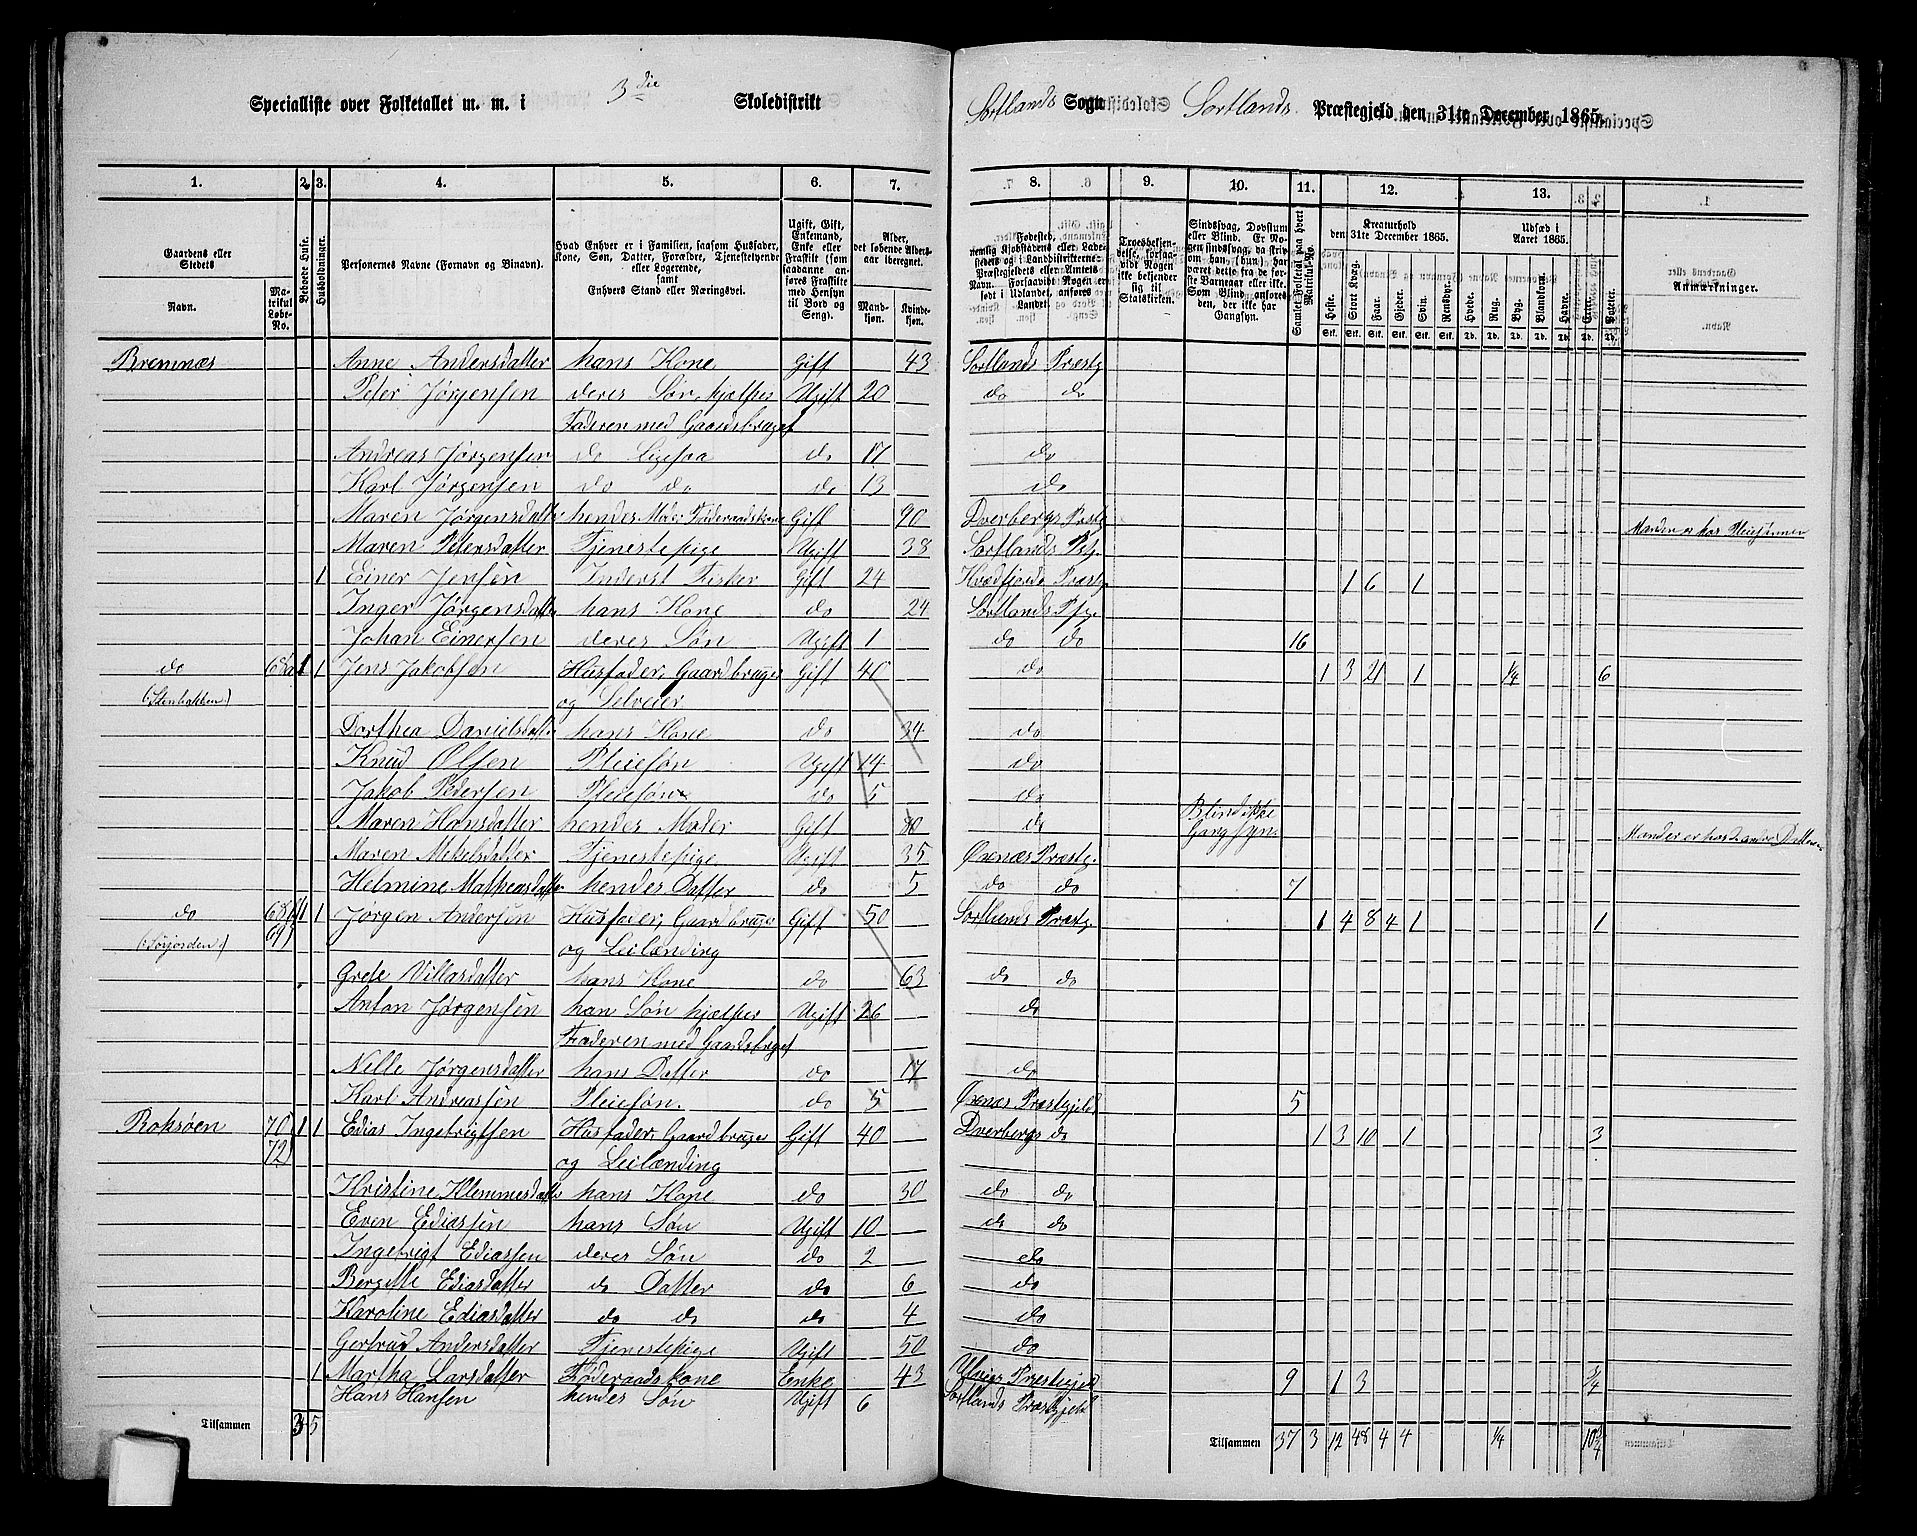 Specialliste over Folketallet m. m. i 3die Skoledistrikt
Sortlands Sogn Sortlands Præstegjeld den 31te December 1865.
1. 2. 3. 4. 5. 6. 7.
8. 9. 10. 11. 12. 13.
Gaardens eller Stedets
Navn.
Matrikul Løbe-No.
Beboede Huse.
Husholdninger.
Personernes Navne (Fornavn og Binavn).
Hvad Enhver er i Familien, saasom Husfader, Kone, Søn, Datter, Forældre, Tjenestetyende eller Logerende, samt Enhvers Stand eller Næringsvei.
Ugift, Gift, Enkemand, Enke eller Fraskilt (som saadanne anføres Fraskilte med Hensyn til Bord og Seng).
Alder, det løbende Aldersaar iberegnet.
Mandkjøn. Kvindekjøn.
Troesbekjendelse, forsaavidt Nogen ikke bekjender sig til Statskirken.
Sindssvag, Døvstum eller Blind.
Samlet Folketal paa hvert Matrikul-No.
Kreaturhold den 31te December 1865.
Udsæd i Aaret 1865.
Heste. Stort Kvæg. Faar. Gjeder. Svin. Rensdyr. Hvede. Rug. Byg. Blandkorn. Havre. Erter. Poteter.
Anmærkninger.
Bremnæs Anne Andersdatter hans Kone Gift 43 Sortlands Præstg
Peter Jørgensen deres Søn, hjælper Ugift 20 do do
Faderen med Gaardsbruget
Andreas Jørgensen do Ligesaa do 17 do
Karl Jørgensen do do do 13 do
Maren Jørgensdatter hendes Moder Føderaadskone Gift 90 Dverbergs Præstg
Maren Petersdatter Tjenestepige Ugift 38 Sortlands Pstg.
1 Einer Jensen Inderst Fisker Gift 24 Kvædfjords Præstg 1 6 1
Inger Jørgensdatter hans Kone do 24 Sortlands Pstg.
Johan Einersen deres Søn Ugift 1 do do 16
do 68a 1 1 Jens Jakobsen Husfader, Gaardbruger Gift 40 do 1 3 21 1 1/4 6
(:Stenbakken:) og Selveier
Dorthea Danielsdatter hans Kone do 34 do
Knud Olsen Pleiesøn Ugift 14 do
Jakob Pedersen Pleiesøn do 5 do
Maren Hansdatter hendes Moder Gift 80 do Blind ikke Gangsyn.
Maren Mekelsdatter Tjenestepige Ugift 35 Øxnæs Præstg.
Helmine Matheasdatter hendes Datter do 5 do do 7
do 68b 1 1 Jørgen Andersen Husfader, Gaardbruger Gift 50 Sortlands Præstg. 1 4 8 4 1 1
(:Sørjorden:) 69 og Leilænding
Grete Villasdatter hans Kone do 63 do do
Anton Jørgensen han Søn hjælper Ugift 26 do
Faderen med Gaardsbruget
Nelle Jørgensdatter hans Datter do 17 do
Karl Andreassen Pleiesøn. do 5 Øxnæs Præstegjeld 5
Roksøen 70 1 1 Edias Ingebrigtsen Husfader, Gaardbruger Gift 40 Dverbergs do 1 3 10 1 3
72 og Leilænding
Kristine Klemmesdatter hans Kone do 30 do do
Even Ediassen hans Søn Ugift 10 do do
Ingebrigt Ediassen deres Søn do 2 do
Bergitte Ediasdatter do Datter do 6 do
Karoline Ediasdatter do do do 4 do
Gertrud Andersdatter Tjenestepige Ugift 50 do
1 Martha Larsdatter Føderaadskone Enke 43 Præstegjeld 9 1 3 3/4
Hans Hansen hendes Søn Ugift 6 Sortlands Præstgjeld
Tilsammen 3 5
Tilsammen 37 3 12 48 4 4 1/4 10 3/4